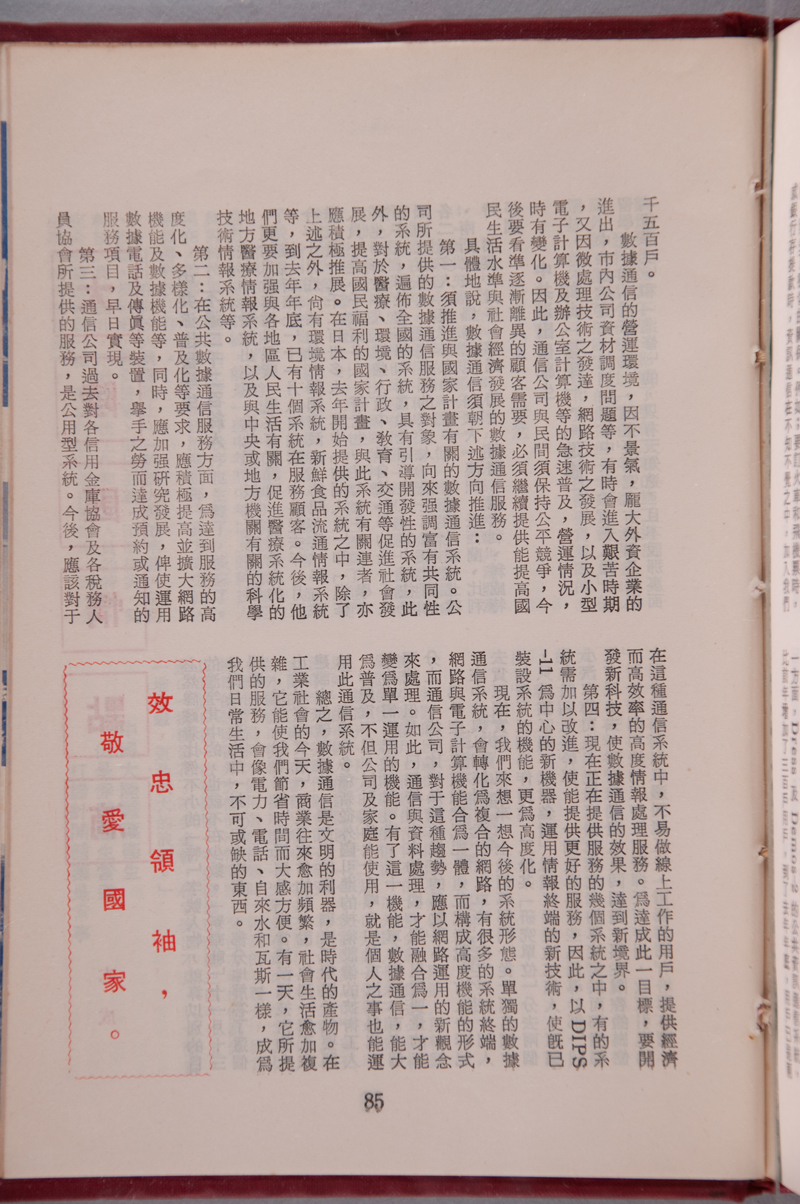 千五百戶。
數據通信的營運環境，因不景氣，龐大外資企業的
進出，市內公司資材調度問題等，有時會進入艱苦時期
，又因微處理技術之發達，網路技術之發展，以及小型
電子計算機及辦公室計算機等的急速普及，營運情況，
時有變化。因此，通信公司與民間須保持公平競爭，今
後要看準逐漸離異的顧客需要，必須繼續提供能提高國
民生活水準與社會經濟發展的數據通信服務。
具體地說，數據通信須朝下述方向推進：
第一：須推進與國家計畫有關的數據通信系統。公
司所提供的數據通信服務之對象，向來强調富有共同性
的系統，遍佈全國的系統，具有引導開發性的系統，此
外，對於醫療、環境、行政、教育、交通等促進社會發
展，提高國民福利的國家計畫，與此系統有關連者，亦
應積極推展。在日本，去年開始提供的系統之中，除了
上述之外，尙有環境情報系統，新鮮食品流通情報系統
等，到去年年底，已有十個系統在服務顧客。今後，他
們更要加强與各地區人民生活有關，促進醫療系統化的
地方醫療情報系統，以及與中央或地方機關有關的科學
技術情報系統等。
第二：在公共數據通信服務方面，爲達到服務的高
度化、多樣化、普及化等要求，應積極提高並擴大網路
機能及數據機能等，同時，應加强硏究發展，俾使運用
數據電話及傳眞等裝置，擧手之勞而達成預約或通知的
服務項目，早日實現。
第三：通信公司過去對各信用金庫協會及各稅務人
員協會所提供的服務，是公用型系統。今後，應該對于
在這種通信系統中，不易做線上工作的用戶，提供經濟
而高效率的高度情報處理服務。爲達成此一目標，要開
發新科技，使數據通信的效果，達到新境界。
第四：現在正在提供服務的幾個系統之中，有的系
統需加以改進，使能提供更好的服務，因此，以DIPS
-11 爲中心的新機器，運用情報終端的新技術，使旣已
裝設系統的機能，更爲高度化。
現在，我們來想一想今後的系統形態。單獨的數據
通信系統，會轉化爲複合的網路，有很多的系統終端，
網路與電子計算機能合爲一體，而構成高度機能的形式
，而通信公司，對于這種趨勢，應以網路運用的新觀念
來處理。如此，通信與資料處理，才能融合爲一，才能
變爲單一運用的機能。有了這一機能，數據通信，能大
爲普及，不但公司及家庭能使用，就是個人之事也能運
用此通信系統。
總之，數據通信是文明的利器，是時代的產物。在
工業社會的今天，商業往來愈加頻繁，社會生活愈加複
雜，它能使我們節省時間而大感方便。有一天，它所提
供的服務，會像電力、電話、自來水和瓦斯一樣，成爲
我們日常生活中，不可或缺的東西。
效忠領袖，
敬愛國家。
85